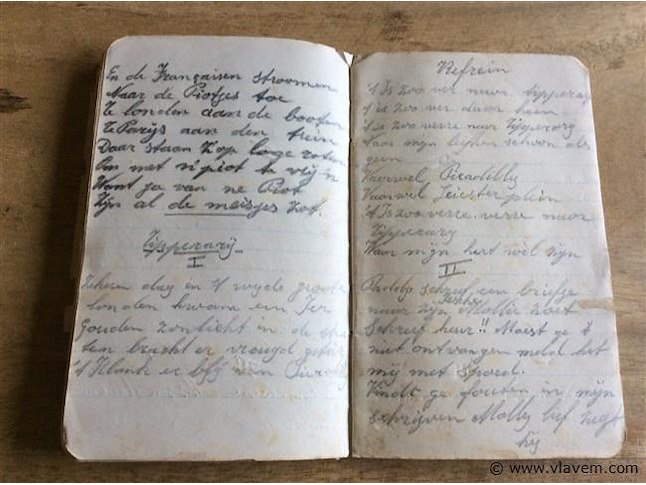 En de Françaisen stroomen
Naar de Piotjes toe
Te londen aan de booten
Te Parijs aan den trein
Daar staan z'op lange roten
Om met n'piot te vrij'n
Want ja van ne Piot
Zijn al de meisjes zot.
Tipperarij
I
Zekeren dag en 't wijde groote
londen kwam een Ier
Gouden zonlicht in de stra
ten bracht er vreugd
't Klonk er blij van
Refrein
't Is zoo ver naar tipperary
't is zoo ver
't is zoo verre naar Tipperary
naar mijn schoon als
geen
Vaarwel Picadilly
Vaarwel Leicester plein
't Is zoo verre verre naar
Tipperary
Waar mijn hert wil zijn
II
schreef een briefje
naar zijn Iersche Mollie zoet
Schreef heur !! Moest ge 't
niet ontvangen meld het
mij met spoed.
Vindt ge fouten in mijn
schrijven Molly lief zegt
hij
© www.vlavem.com